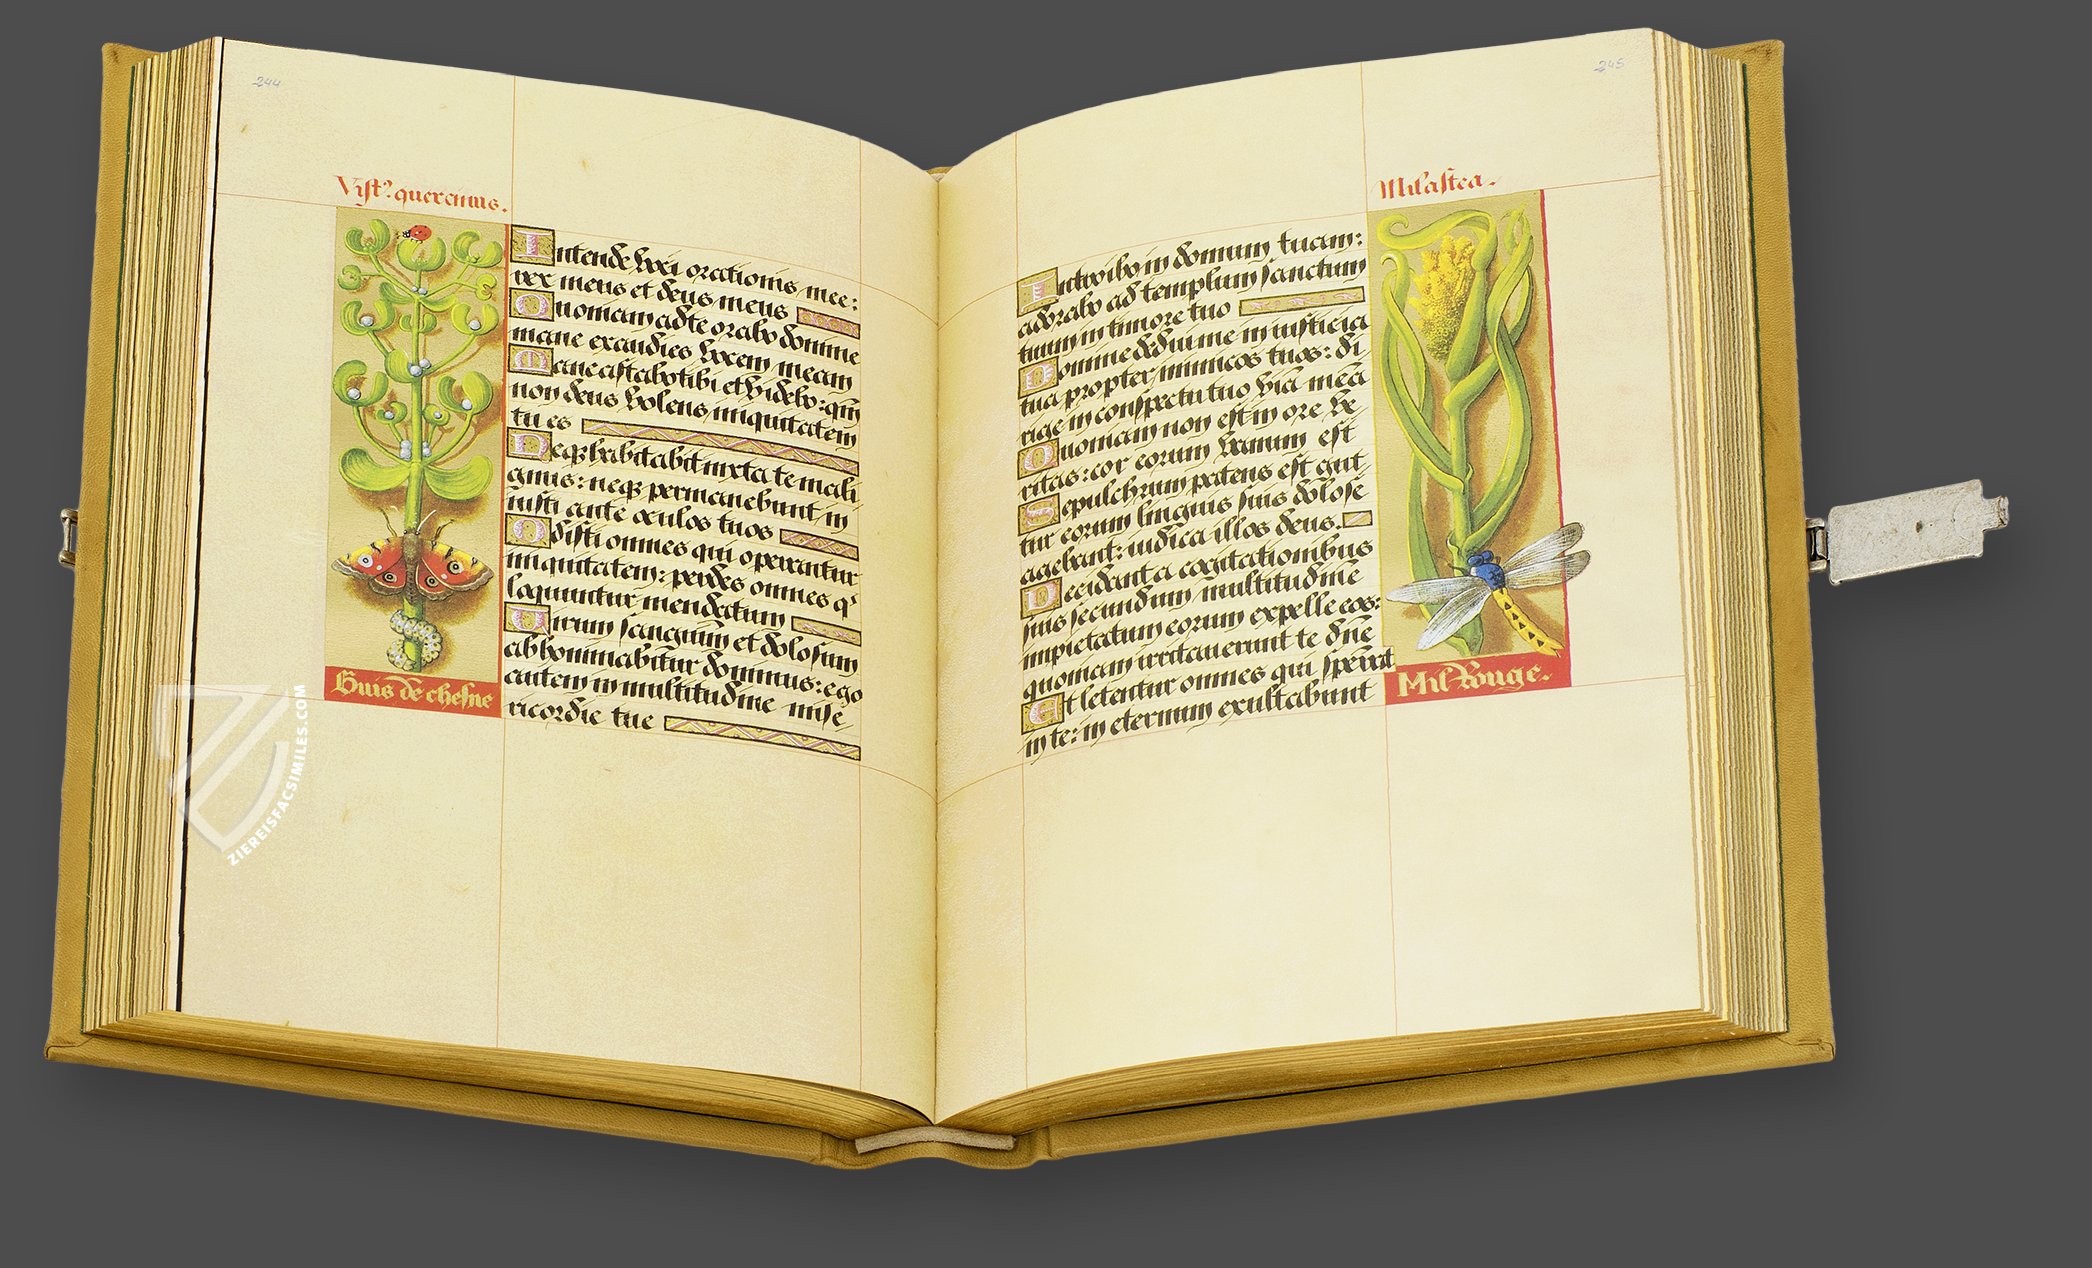 244
Vist⁹. quercinus.
Intende voci orationis mee:
rex meus et deus meus
Quoniam ad te orabo domine
mane exaudies vocem meam
Mane astabo tibi et videbo: qm̄
non deus volens iniquitatem
tu es
Neqȝ habitabit iuxta te mali
gnus: neqȝ permanebunt in
iusti ante oculos tuos
Odisti omnes qui operantur
iniquitatem: perdes omnes q'
loquuntur mendatium
Virum sanguinū et dolosum
abhominabitur dominus: ego
autem in multitudine mise
ricordie tue
Guis de chesne
245
Introibo in domum tuam:
adorabo ad templum sanctum
tuum in timore tuo
Domine deduc me in iusticia
tua propter inimicos tuos: di
rige in conspectu tuo viā meā
Quoniam non est in ore ve
ritas: cor eorum vanum est
Sepulchrum patens est gut
tur eorum linguis suis dolose
agebant: iudica illos deus.
Decidant a cogitationibus
suis secundum multitudinē
impietatum eorum expelle eos:
quoniam irritauerunt te dn̄e
Et letentur omnes qui sperāt
in te: in eternum exultabunt
Milastea.
Mil Rouge.
ZIEREISFACSIMILES.COM